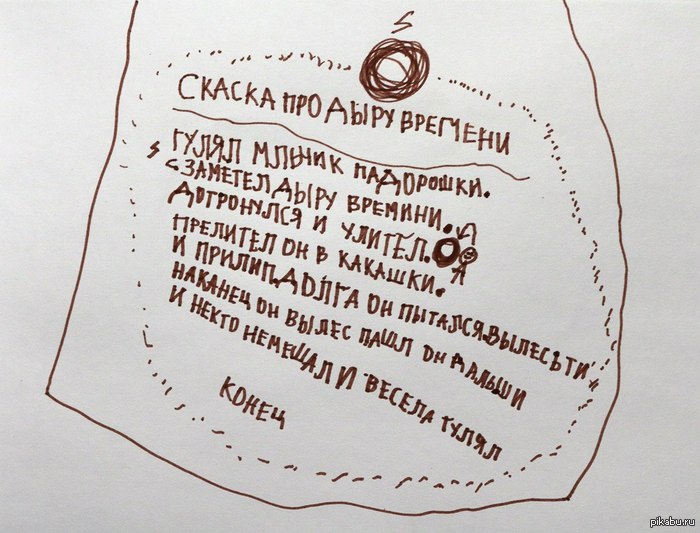 СКАСКА ПРО ДЫРУ ВРЕМЕНИ
ГУЛЯЛ МЛЬЧИК ПАДОРОШКИ.
ЗАМЕТЕЛ ДЫРУ ВРЕМИНИ.
ДОТРОНУЛСЯ И УЛИТЕЛ.
ПРЕЛИТЕЛ ОН В КАКАШКИ.
И ПРИЛИП. ДОЛГА ОН ПЫТАЛСЯ ВЫЛЕСЬТИ
НАКАНЕЦ ОН ВЫЛЕС ПАШЛ ОН ДАЛЬШИ
И НЕКТО НЕМЕШАЛ И ВЕСЕЛА ГУЛЯЛ
КОНЕЦ
pikabu.ru